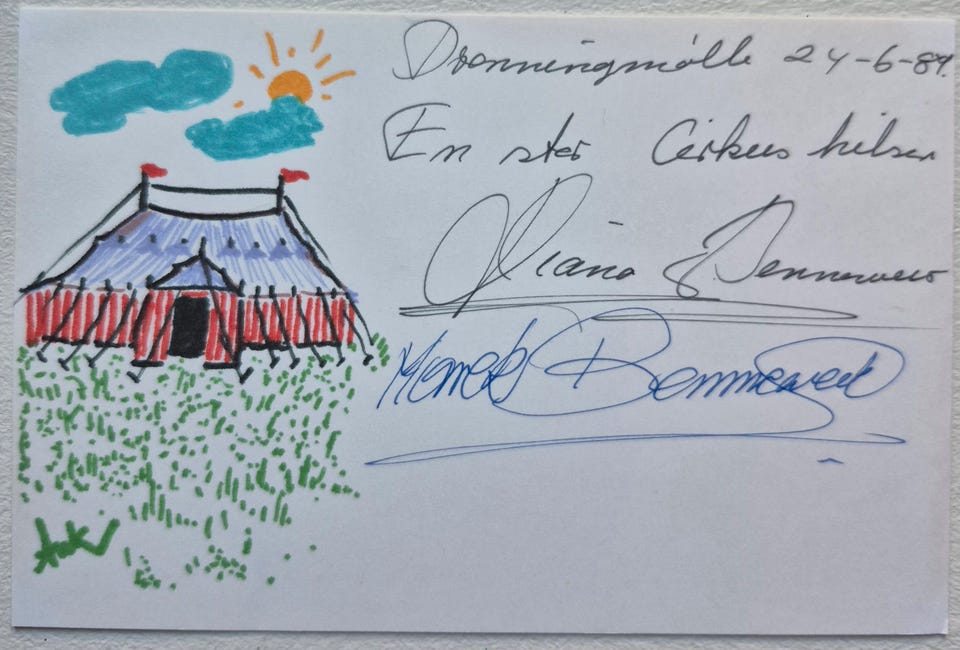 Dronningmølle 24-6-89.
En stor Cirkus hilsen
Diana Benneweis
Benneweis